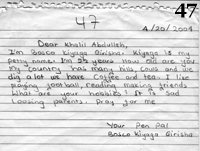 47
47
4/20/2009
Dear Khalil Abdullah,
I'm Bosco Kiyaga Girisha. Kiyaga is my
petty name. I'm 25 years How old are you
My country has many hills, could and we
dig a lot we have Coffee and tea. I like
playing football, reading, making friends
What are your hobbies? It is Sad
Loosing parents. Pray for me
Your Pen Pal
Bosco Kiyaga Girisha